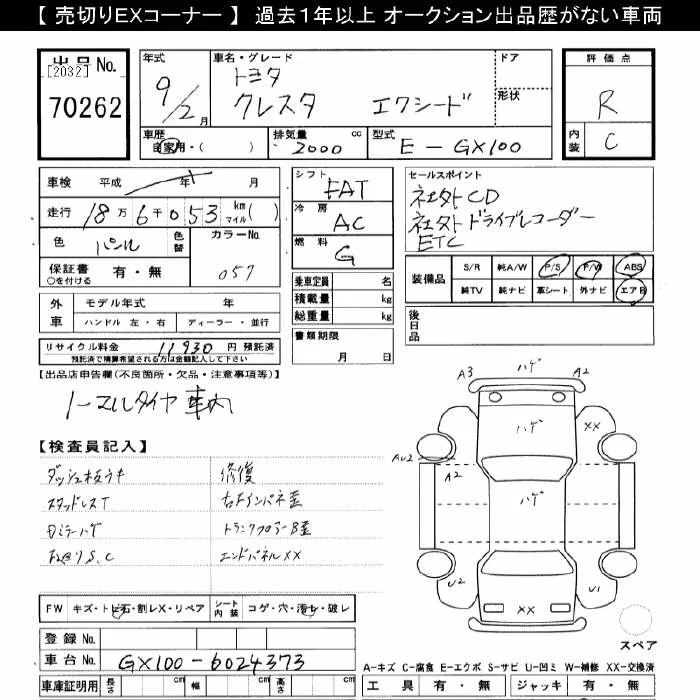 【 売切りEXコーナー 】 過去1年以上 オークション出品歴がない車両
出品 No.
[2032]
70262
年式
9/2月
車名・グレード
トヨタ
クレスタ エクシード
ドア
形状
評価点
R
内装 C
車歴
自家用・( )
排気量 cc
2000
型式
E-GX100
車検 平成 年 月
走行 18万6千053 km マイル( )
色 パール 色替
カラーNo.
057
保証書 有・無
○を付ける
外車
モデル年式 年
ハンドル 左・右 ディーラー・並行
リサイクル料金 11930 円 預託済
預託済で精算希望される方は金額記入して下さい
シフト
FAT
冷房
AC
燃料
G
乗車定員 名
積載量 kg
総重量 kg
書類期限
月 日
セールスポイント
社外CD
社外ドライブレコーダー
ETC
装備品
S/R 純A/W P/S P/W ABS
純TV 純ナビ 革シート 外ナビ エアB
後日品
【出品店申告欄(不良箇所・欠品・注意事項等)】
ノーマルタイヤ車内
【検査員記入】
ダッシュ板ウキ
スタッドレスT
Dミラーハゲ
S.C
修復
右Fインパネ歪
トランクフロアーB歪
エンドパネルXX
FW キズ・トビ石・割レX・リペア
シート内装 コゲ・穴・汚レ・破レ
登録 No.
車台 No. GX100-6024373
車庫証明用 長さ cm 幅 cm 高さ cm
A3 ハゲ A2
ハゲ XX
AU2
A2 ハゲ
U2 XX U1
スペア
A-キズ C-腐食 E-エクボ S-サビ U-凹ミ W-補修 XX-交換済
工具 有・無 ジャッキ 有・無